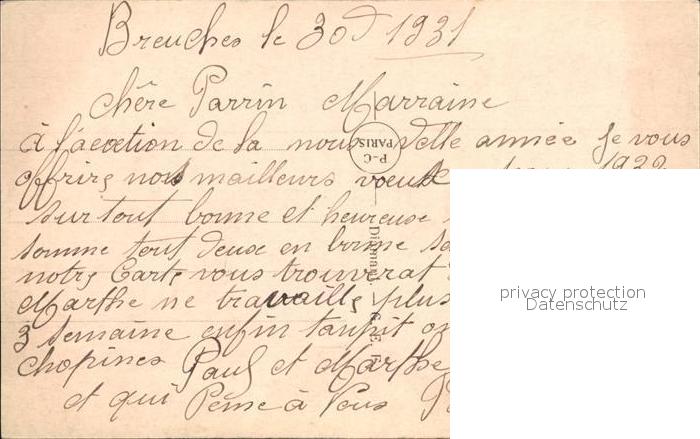 Breuches le 30 d 1931
Chère Parrin Marraine
à l'acextion de la nouvelle année je vous
offrirs nos mailleurs voeux 1932
surtout bonne et heureuse
somme tout deux en bonne
notre Carte vous trouverat
Marthe ne travaille plus
3 semaine enfin tanpit on
chopines Paul et Marthe
et qui Pense à Vous
P-C
PARIS
privacy protection
Datenschutz